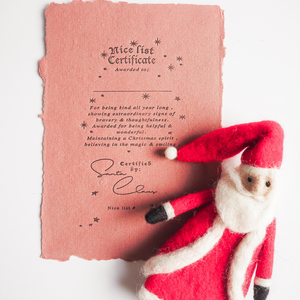 Nice list
Certificate
Awarded to:
For being kind all year long,
showing extraordinary signs of
bravery & thoughtfulness.
Awarded for being helpful &
wonderful.
Maintaining a Christmas spirit
believing in the magic & smiling
Certified
by:
Santa
Claus
Nice list #